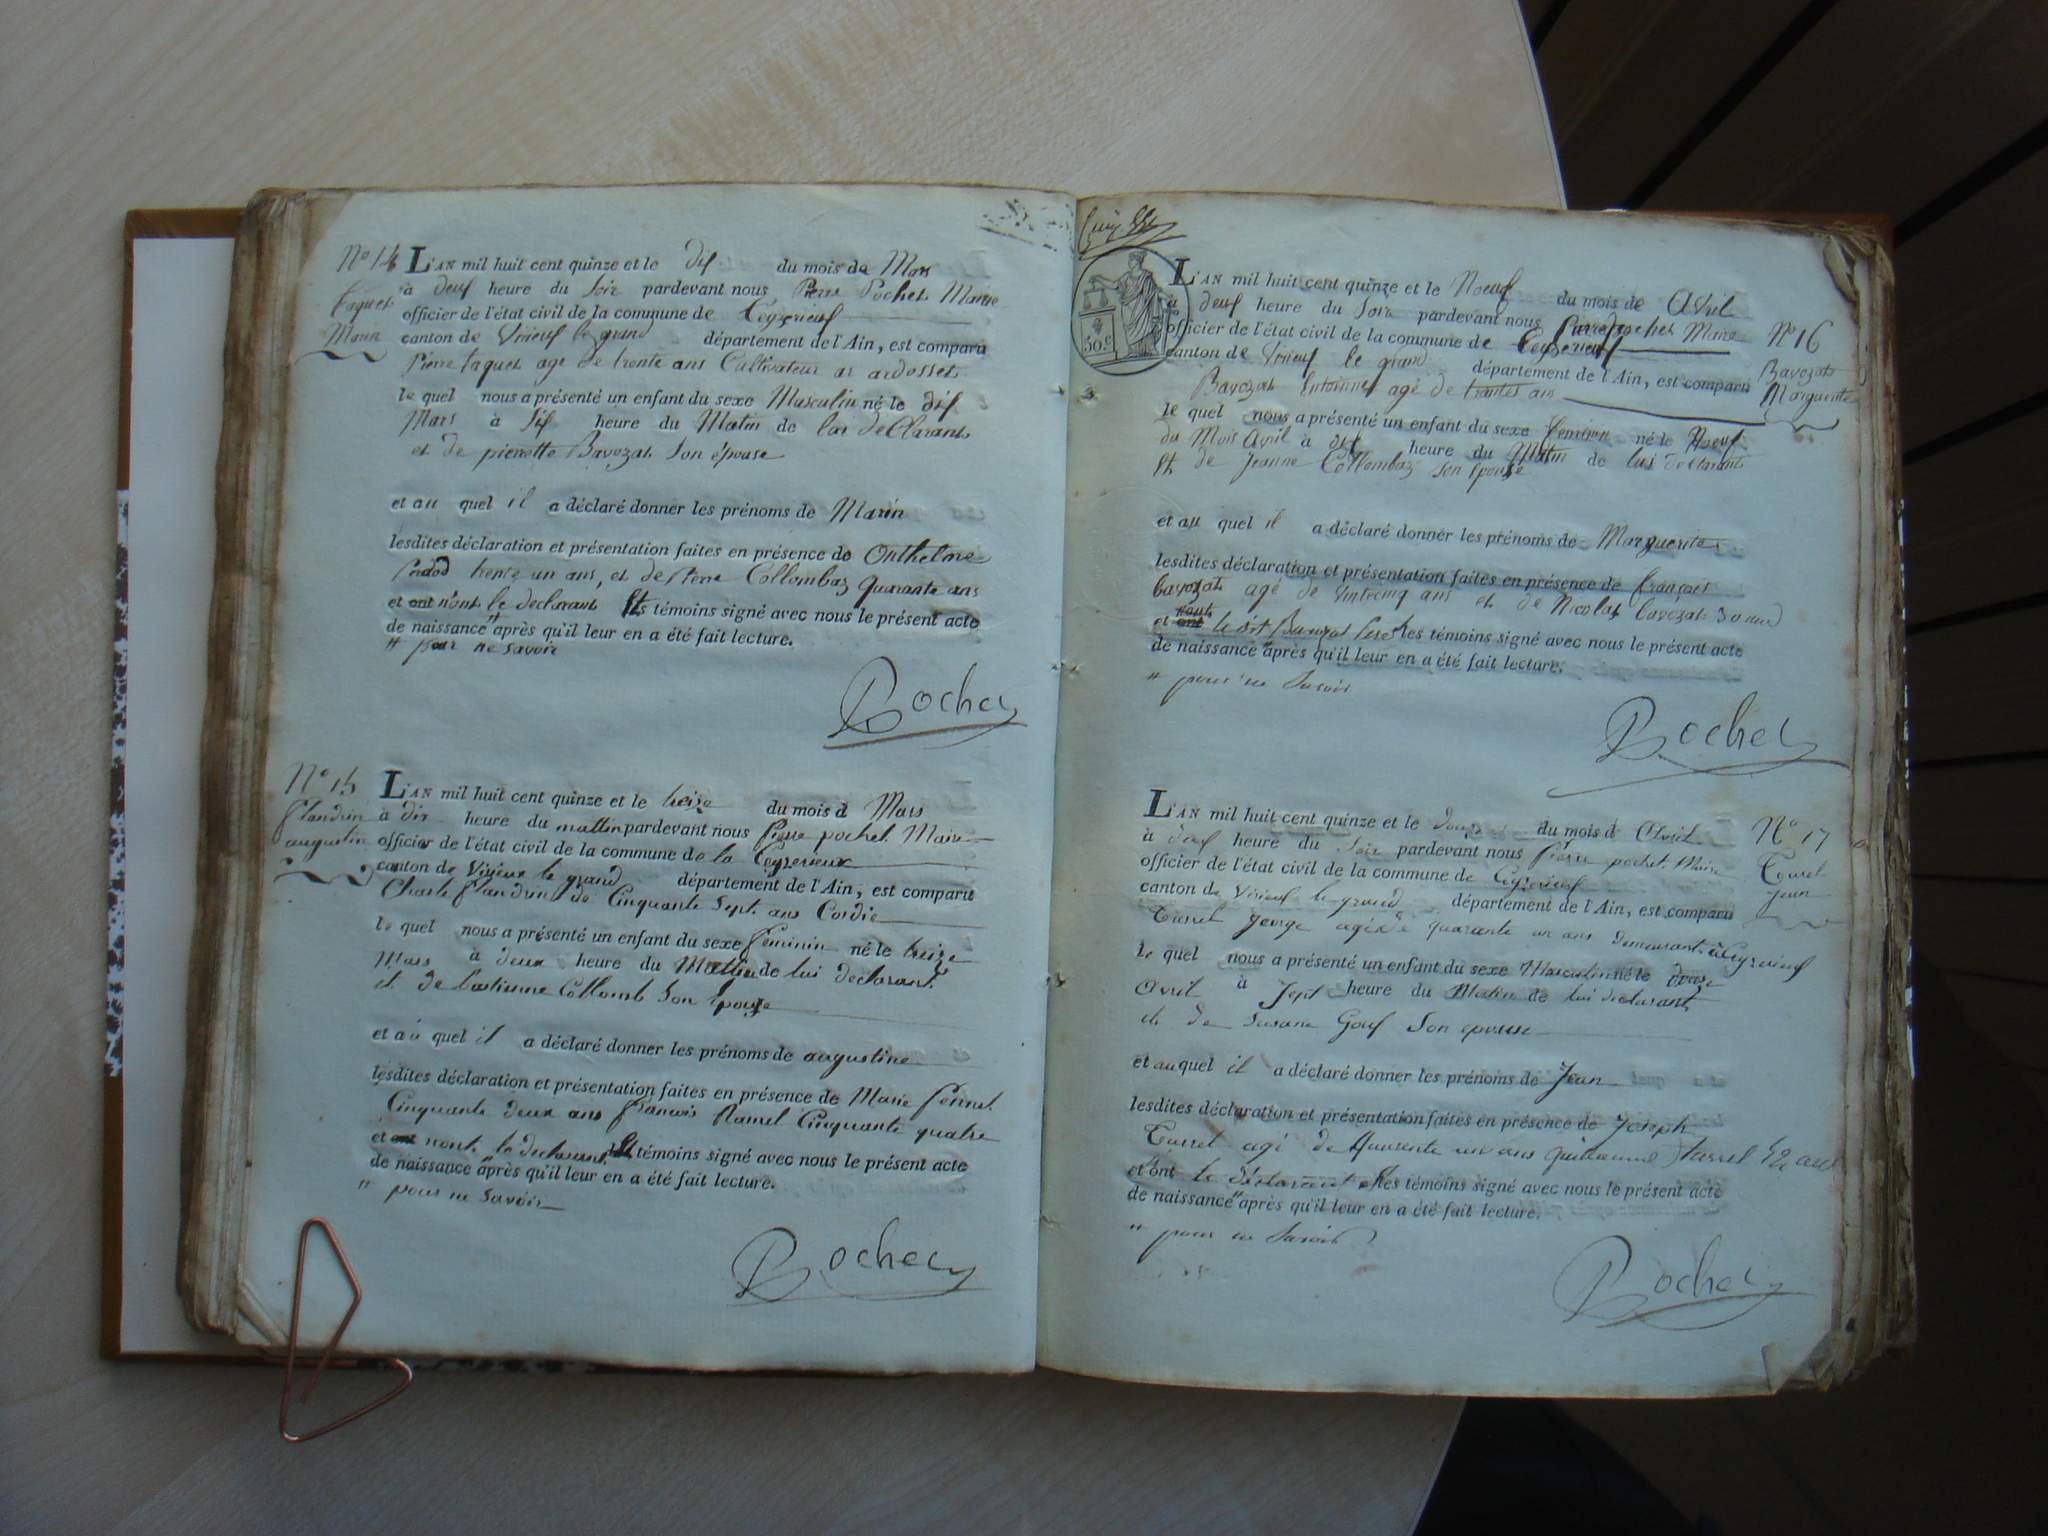 No 14
Taquet
Marin
L'AN mil huit cent quinze et le dix du mois de Mars
à deux heure du Soir pardevant nous Pierre Pochet Maire
officier de l'état civil de la commune de Ceyzerieux
canton de Virieux le grand département de l'Ain, est comparu
Pierre taquet age de trente ans Cultivateur ar ardosset
le quel nous a présenté un enfant du sexe Masculin né le dix
Mars à Six heure du Matin de lui declarant
et de pierrette Bavozat Son épouse
et au quel il a déclaré donner les prénoms de Marin
lesdites déclaration et présentation faites en présence de Onthelme
trente un ans, et de Pierre Collombaz Quarante ans
et n'ont le declarant témoins signé avec nous le présent acte
de naissance " après qu'il leur en a été fait lecture.
" pour ne savoir
Pochet
No 15
flandrin
augustin
L'AN mil huit cent quinze et le treize du mois d Mars
à dix heure du mattin pardevant nous Pierre pochet Maire
officier de l'état civil de la commune de la Ceyzerieux
canton de Virieux le grand département de l'Ain, est comparu
Charle flandrin de Cinquante Sept ans Cordie
le quel nous a présenté un enfant du sexe feminin né le treize
Mars à deux heure du Mattin de lui declarant
et de Collomb Son Epouse
et au quel il a déclaré donner les prénoms de augustine
lesdites déclaration et présentation faites en présence de Marie
Cinquante deux ans francois Cinquante quatre
et nont le declarant témoins signé avec nous le présent acte
de naissance " après qu'il leur en a été fait lecture.
" pour ne Savoir
Pochet
50.c
L'AN mil huit cent quinze et le Noeuf du mois de Avril
à deux heure du Soir pardevant nous Pierre Pochet Maire
officier de l'état civil de la commune de Ceyzerieux
canton de Virieux le grand département de l'Ain, est comparu
Bavozat age de trantes ans
le quel nous a présenté un enfant du sexe feminin né le Noeuf
du Mois Avril à heure du Matin de lui declarant
Et de Jeanne Collombaz Son Epouse
et au quel il a déclaré donner les prénoms de Marguerite
lesdites déclaration et présentation faites en présence de françois
bavozat agé de vintecinq ans et de Nicolas bavozat 30 ans
n'ont
et ont le dit les témoins signé avec nous le présent acte
de naissance " après qu'il leur en a été fait lecture.
" pour ne Savoir
Pochet
No 16
Bavozat
Marguerite
L'AN mil huit cent quinze et le douze du mois d Avril
à deux heure du Soir pardevant nous Pierre pochet Maire
officier de l'état civil de la commune de Ceyzerieux
canton de Virieux le grand département de l'Ain, est comparu
Turrel George agé de quarante un ans demeurant à Ceyzerieux
le quel nous a présenté un enfant du sexe Masculin né le douze
Avril à Sept heure du Matin de lui declarant
et de Susane Gouf Son epouse
et au quel il a déclaré donner les prénoms de Jean
lesdites déclaration et présentation faites en présence de Joseph
Turrel agé de Quarente un ans Guillaume turrel 42 ans
et ont le declarant les témoins signé avec nous le présent acte
de naissance " après qu'il leur en a été fait lecture.
" pour ne Savoir
Pochet
No 17
Tourel
Jean